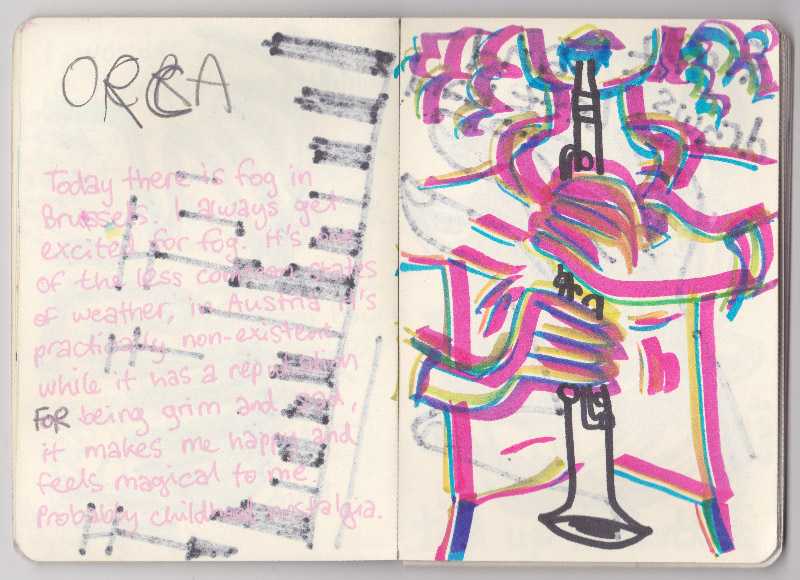 ORCA
Today there is fog in
Brussels. I always get
excited for fog. It's one
of the less common states
of weather, in Austria it's
practically non-existent
while it has a reputation
FOR being grim and sad,
it makes me happy and
feels magical to me.
Probably childhood nostalgia.